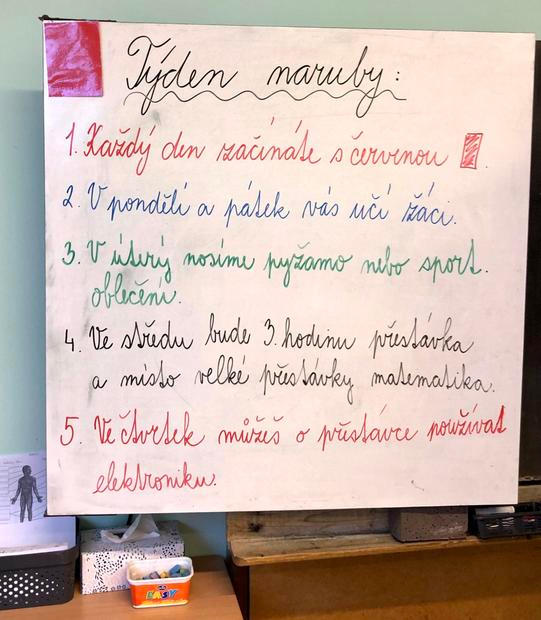 Týden naruby:
1. Každý den začínáte s červenou .
2. V pondělí a pátek vás učí žáci.
3. V úterý nosíme pyžamo nebo sport.
oblečení.
4. Ve středu bude 3. hodinu přestávka
a místo velké přestávky matematika.
5. Ve čtvrtek můžeš o přestávce používat
elektroniku.
EASY